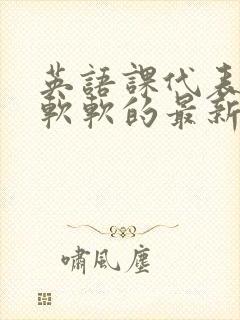 英語課代表
軟軟的最新
嘯風塵